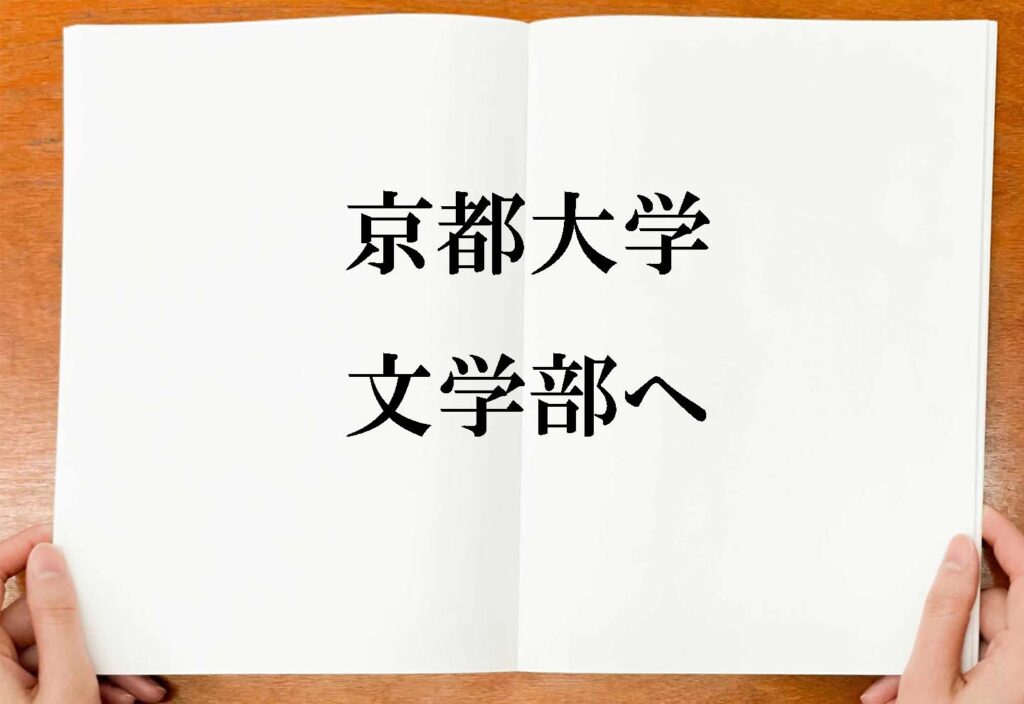 京都大学
文学部へ